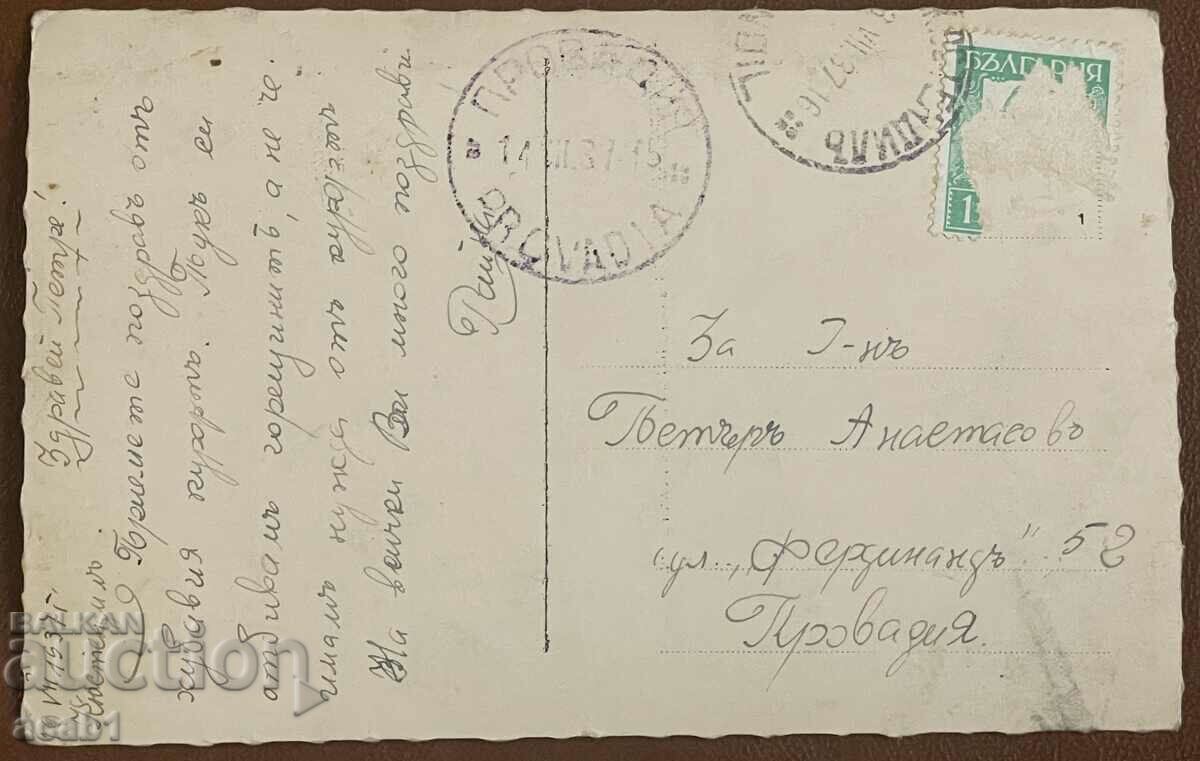 Кюстендилъ
Здравей Петре!
Приемете поздравъ отъ
хубавия курортъ. Тукъ си
отбивамъ горещинитѣ, а не че
имамъ нужда
На всички Ви много поздрави
ПРОВАДИЯ
14 VIII.37.15
PROVADIA
VIII 37.16
БЪЛГАРИЯ
1
1
За Г-нъ
Петъръ Анастасовъ
ул. „Фердинандъ" 52
Провадия.
BALKAN
auction
acab1